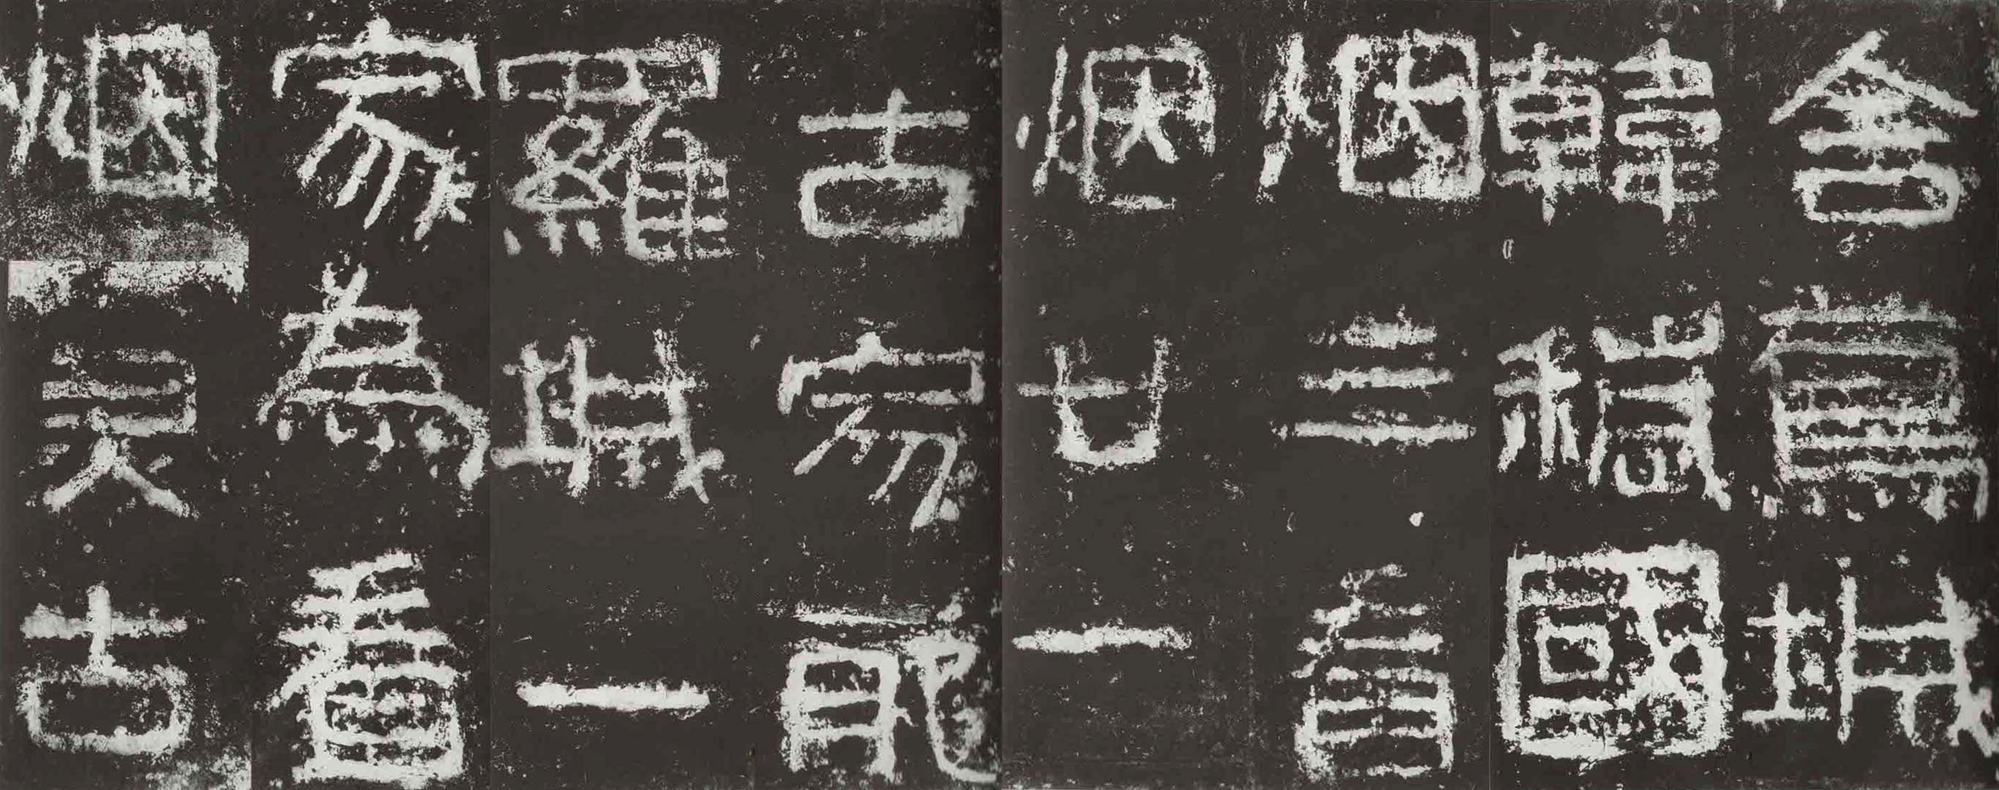 舍蔦城
韓穢國
烟三看
烟廿一
古家耶
羅城一
家為看
烟炅古